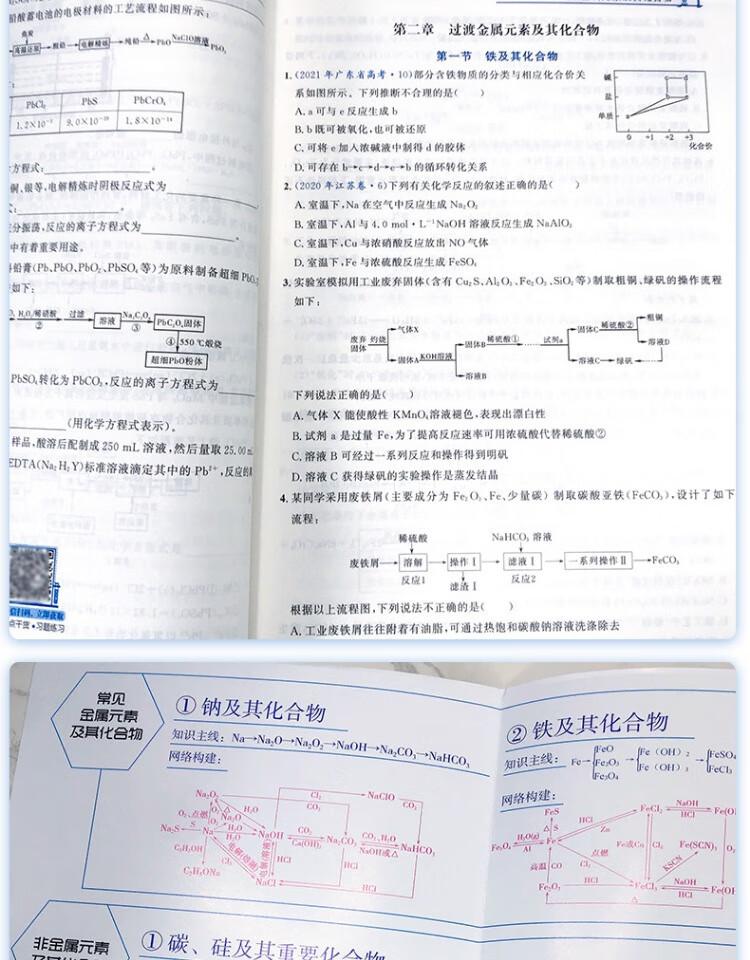 铅酸蓄电池的电极材料的工艺流程如图所示：
焦炭
高温还原 粗铅 电解精炼 纯铅 △ PbO NaClO溶液 PbO₂
PbCl₂ PbS PbCrO₄
方程式：
铜、银等，电解精炼时阴极反应式为
分振荡，反应的离子方程式为
中有着重要用途。
铅膏(Pb、PbO、PbO₂、PbSO₄等)为原料制备超细PbO
如下：
H₂O₂稀硫酸 过滤 溶液 Na₂CO₃ PbC₂O₄固体
② ③
④ 550 ℃煅烧
超细PbO粉体
PbSO₄转化为PbCO₃，反应的离子方程式为
(用化学方程式表示)。
样品，酸溶后配制成250 mL溶液，然后量取25.00 mL
EDTA(Na₂H₂Y)标准溶液滴定其中的Pb²⁺，反应的
点干货•习题练习
第二章 过渡金属元素及其化合物
第一节 铁及其化合物
1.(2021年广东省高考·10)部分含铁物质的分类与相应化合价关
系如图所示。下列推断不合理的是( )
A.a可与e反应生成b
B.b既可被氧化，也可被还原
C.可将e加入浓碱液中制得d的胶体
D.可存在b→c→d→e→b的循环转化关系
碱
盐
单质
0 +2 +3
化合价
2.(2020年江苏卷·6)下列有关化学反应的叙述正确的是( )
A.室温下，Na在空气中反应生成Na₂O₂
B.室温下，Al与4.0 mol·L⁻¹NaOH溶液反应生成NaAlO₂
C.室温下，Cu与浓硝酸反应放出NO气体
D.室温下，Fe与浓硫酸反应生成FeSO₄
3.实验室模拟用工业废弃固体(含有Cu₂S、Al₂O₃、Fe₂O₃、SiO₂等)制取粗铜、绿矾的操作流程
如下：
废弃固体 灼烧 气体X
固体A KOH溶液 固体B 稀硫酸① 试剂a 固体C 稀硫酸② 粗铜
溶液D
溶液B 溶液C 绿矾
下列说法正确的是( )
A.气体X能使酸性KMnO₄溶液褪色，表现出漂白性
B.试剂a是过量Fe，为了提高反应速率可用浓硫酸代替稀硫酸②
C.溶液B可经过一系列反应和操作得到明矾
D.溶液C获得绿矾的实验操作是蒸发结晶
4.某同学采用废铁屑(主要成分为Fe₂O₃、Fe、少量碳)制取碳酸亚铁(FeCO₃)，设计了如下
流程：
稀硫酸 NaHCO₃溶液
废铁屑 溶解 操作Ⅰ 滤液Ⅰ 一系列操作Ⅱ FeCO₃
反应1 滤渣Ⅰ 反应2
根据以上流程图，下列说法不正确的是( )
A.工业废铁屑往往附着有油脂，可通过热饱和碳酸钠溶液洗涤除去
常见
金属元素
及其化合物
① 钠及其化合物
知识主线：Na→Na₂O→Na₂O₂→NaOH→Na₂CO₃→NaHCO₃
网络构建：
Na₂O₂ Cl₂ NaClO CO₂
CO₂
O₂，点燃 O₂ Na₂O H₂O
Na₂S S Na H₂O NaOH CO₂ Na₂CO₃ CO₂、H₂O NaHCO₃
H₂O Ca(OH)₂ NaOH或△
C₂H₅OH 电解(熔融) 电解(溶液) HCl HCl
C₂H₅ONa Cl₂ NaCl HCl
② 铁及其化合物
知识主线：Fe→ FeO Fe₂O₃ Fe₃O₄ → Fe（OH）₂ Fe（OH）₃ → FeSO₄ FeCl₃
网络构建：
FeS HCl FeCl₂ NaOH
HCl
△ S Zn
Fe₃O₄ H₂O(g) Fe 点燃 Fe或Cu Cl₂ Fe(SCN)₃ O₂
Al
高温 CO Cl₂ KSCN
Fe₂O₃ HCl FeCl₃ NaOH
HCl
△
非金属元素
① 碳、硅及其重要化合物